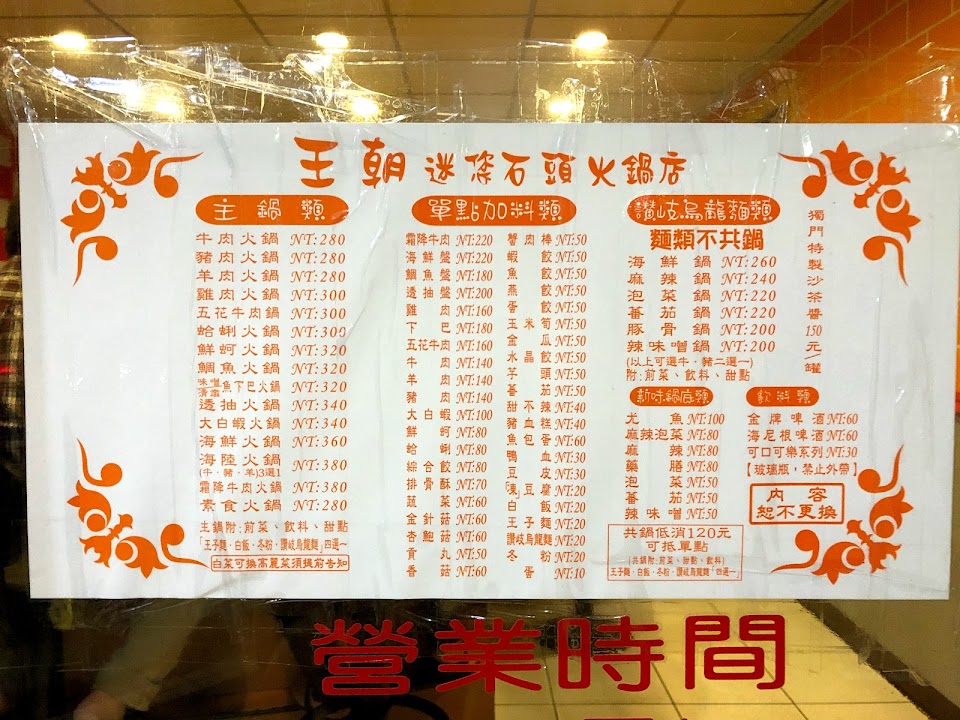 王朝迷你石頭火鍋店
主鍋類
牛肉火鍋 NT:280
豬肉火鍋 NT:280
羊肉火鍋 NT:280
雞肉火鍋 NT:300
五花牛肉鍋 NT:300
蛤蜊火鍋 NT:300
鮮蚵火鍋 NT:320
鯛魚火鍋 NT:320
味噌 清蒸 魚下巴火鍋 NT:320
透抽火鍋 NT:340
大白蝦火鍋 NT:340
海鮮火鍋 NT:360
海陸火鍋 NT:380
(牛、豬、羊)3選1
霜降牛肉火鍋 NT:380
素食火鍋 NT:280
主鍋附:前菜、飲料、甜點
「王子麵、白飯、冬粉、讚岐烏龍麵」四選一
白菜可換高麗菜須提前告知
單點加料類
霜降牛肉 NT:220
海鮮盤 NT:220
鯛魚盤 NT:180
透抽盤 NT:200
雞肉 NT:160
下巴 NT:180
五花牛肉 NT:160
牛肉 NT:140
羊肉 NT:140
豬肉 NT:140
大白蝦 NT:100
鮮蚵 NT:80
蛤蜊 NT:80
綜合餃 NT:80
排骨酥 NT:70
蔬菜 NT:60
金針菇 NT:60
杏鮑菇 NT:60
貢丸 NT:50
香菇 NT:60
蟹肉棒 NT:50
蝦餃 NT:50
魚餃 NT:50
燕餃 NT:50
蛋餃 NT:50
玉米筍 NT:50
金瓜 NT:50
水晶餃 NT:50
芋頭 NT:50
蕃茄 NT:50
甜不辣 NT:40
豬血糕 NT:40
魚包蛋 NT:60
鴨血 NT:30
豆皮 NT:30
凍豆腐 NT:20
白飯 NT:20
王子麵 NT:20
讚岐烏龍麵 NT:20
冬粉 NT:20
蛋 NT:10
讚岐烏龍麵類
麵類不共鍋
海鮮鍋 NT:260
麻辣鍋 NT:240
泡菜鍋 NT:220
蕃茄鍋 NT:220
豚骨鍋 NT:200
辣味噌鍋 NT:200
(以上可選牛、豬二選一)
附:前菜、飲料、甜點
新味鍋底類
尤魚 NT:100
麻辣泡菜 NT:80
麻辣 NT:80
藥膳 NT:80
泡菜 NT:50
蕃茄 NT:50
辣味噌 NT:50
共鍋低消120元
可抵單點
(共鍋附:前菜、甜點、飲料)
王子麵、白飯、冬粉、讚岐烏龍麵「四選一」
飲料類
金牌啤酒 NT:60
海尼根啤酒 NT:60
可口可樂系列 NT:30
【玻璃瓶,禁止外帶】
內容
恕不更換
獨門特製沙茶醬150元/罐
營業時間